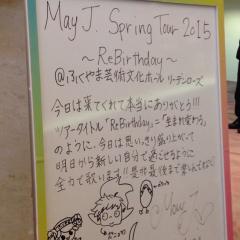 May J. Spring Tour 2015
～ReBirthday～
@ふくやま芸術文化ホール リーデンローズ
今日は来てくれて本当にありがとう!!!
ツアータイトル「ReBirthday」=「生まれ変わる」
のように、今日は思いっきり盛り上がって
明日から新しい自分で過ごせるように
全力で歌います!!是非最後まで楽しんでね♡
May J.